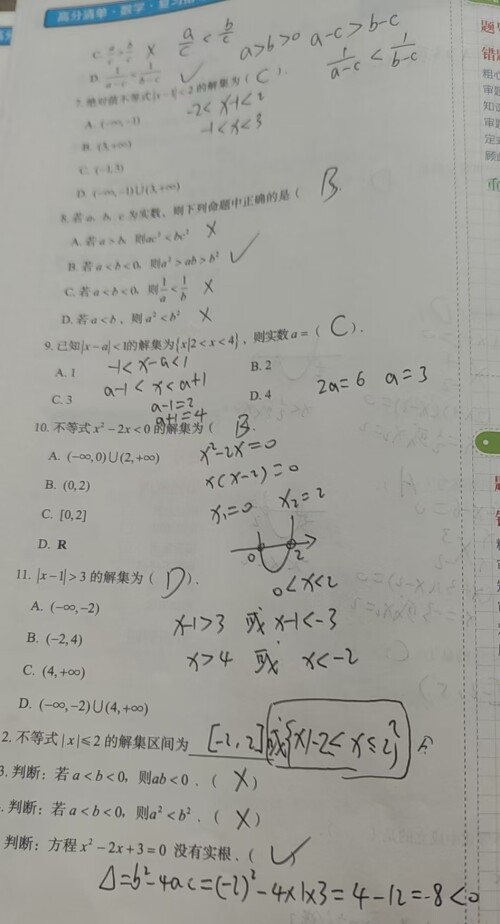 高分清单·数学·复习
C. a/c > b/c × a/c < b/c
a>b>0 a-c>b-c
D. 1/(a-c) < 1/(b-c) ✓ 1/(a-c) < 1/(b-c)
7. 绝对值不等式|x-1|<2的解集为( C ).
A. (-∞,-1) -2<x-1<2
B. (3,+∞) -1<x<3
C. (-1,3)
D. (-∞,-1)∪(3,+∞)
8. 若a、b、c为实数,则下列命题中正确的是( B.
A. 若a>b, 则ac²<bc² ×
B. 若a<b<0, 则a²>ab>b² ✓
C. 若a<b<0, 则1/a<1/b ×
D. 若a<b, 则a²<b² ×
9. 已知|x-a|<1的解集为{x|2<x<4},则实数a=( C ).
A. 1 -1<x-a<1 B. 2
C. 3 a-1<x<a+1 D. 4 2a=6 a=3
a-1=2
a+1=4
10. 不等式x²-2x<0的解集为( B.
A. (-∞,0)∪(2,+∞) x²-2x=0
B. (0,2) x(x-2)=0
C. [0,2] x₁=0 x₂=2
D. R 0 2
0<x<2
11. |x-1|>3的解集为( D ).
A. (-∞,-2) x-1>3 或 x-1<-3
B. (-2,4)
C. (4,+∞) x>4 或 x<-2
D. (-∞,-2)∪(4,+∞)
2. 不等式|x|≤2的解集区间为 [-2,2]或{x|-2≤x≤2}
3. 判断:若a<b<0,则ab<0.( × )
. 判断:若a<b<0,则a²<b².( × )
判断:方程x²-2x+3=0没有实根.( ✓
Δ=b²-4ac=(-2)²-4×1×3=4-12=-8<0